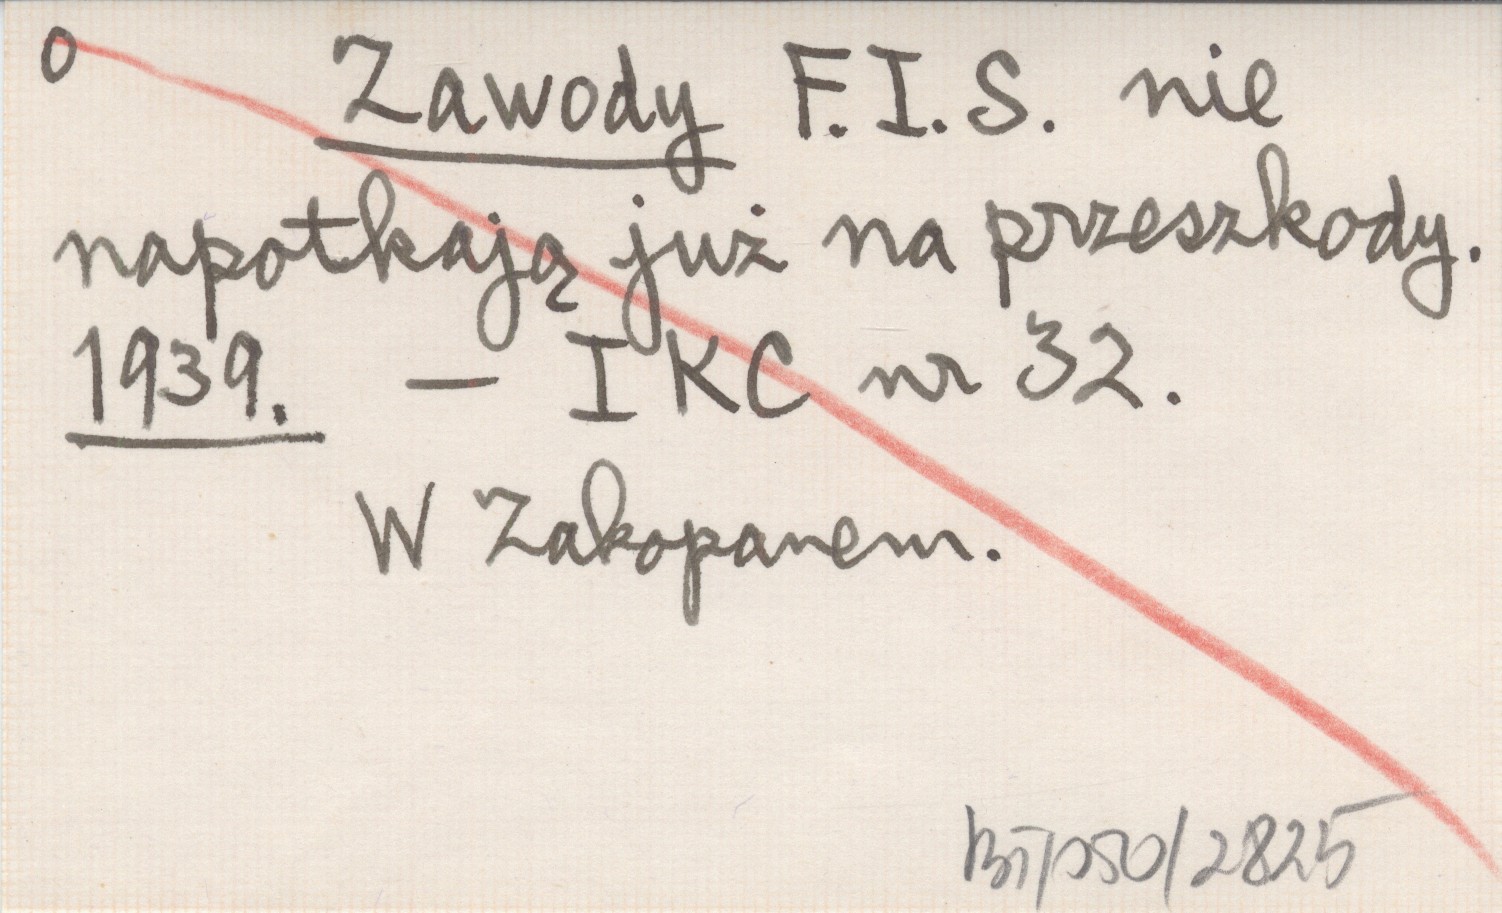 o Zawody F.I.S. nie
napotkają już na przeszkody.
1939. — IKC nr 32.
W Zakopanem.
2825